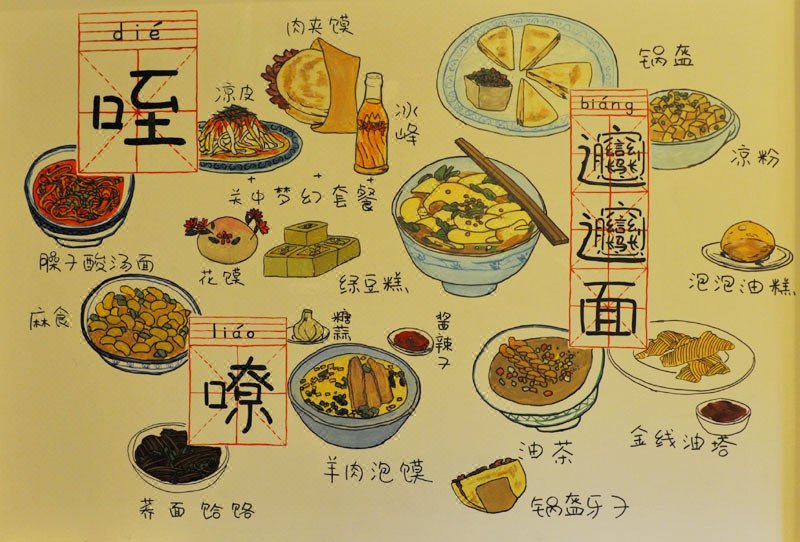 dié
咥
肉夹馍
凉皮
冰峰
锅盔
biáng
𰻝𰻝面
凉粉
关中梦幻套餐
臊子酸汤面
花馍
绿豆糕
泡泡油糕
麻食
liáo
嘹
糖蒜
酱辣子
羊肉泡馍
油茶
金线油塔
荞面饸饹
锅盔牙子